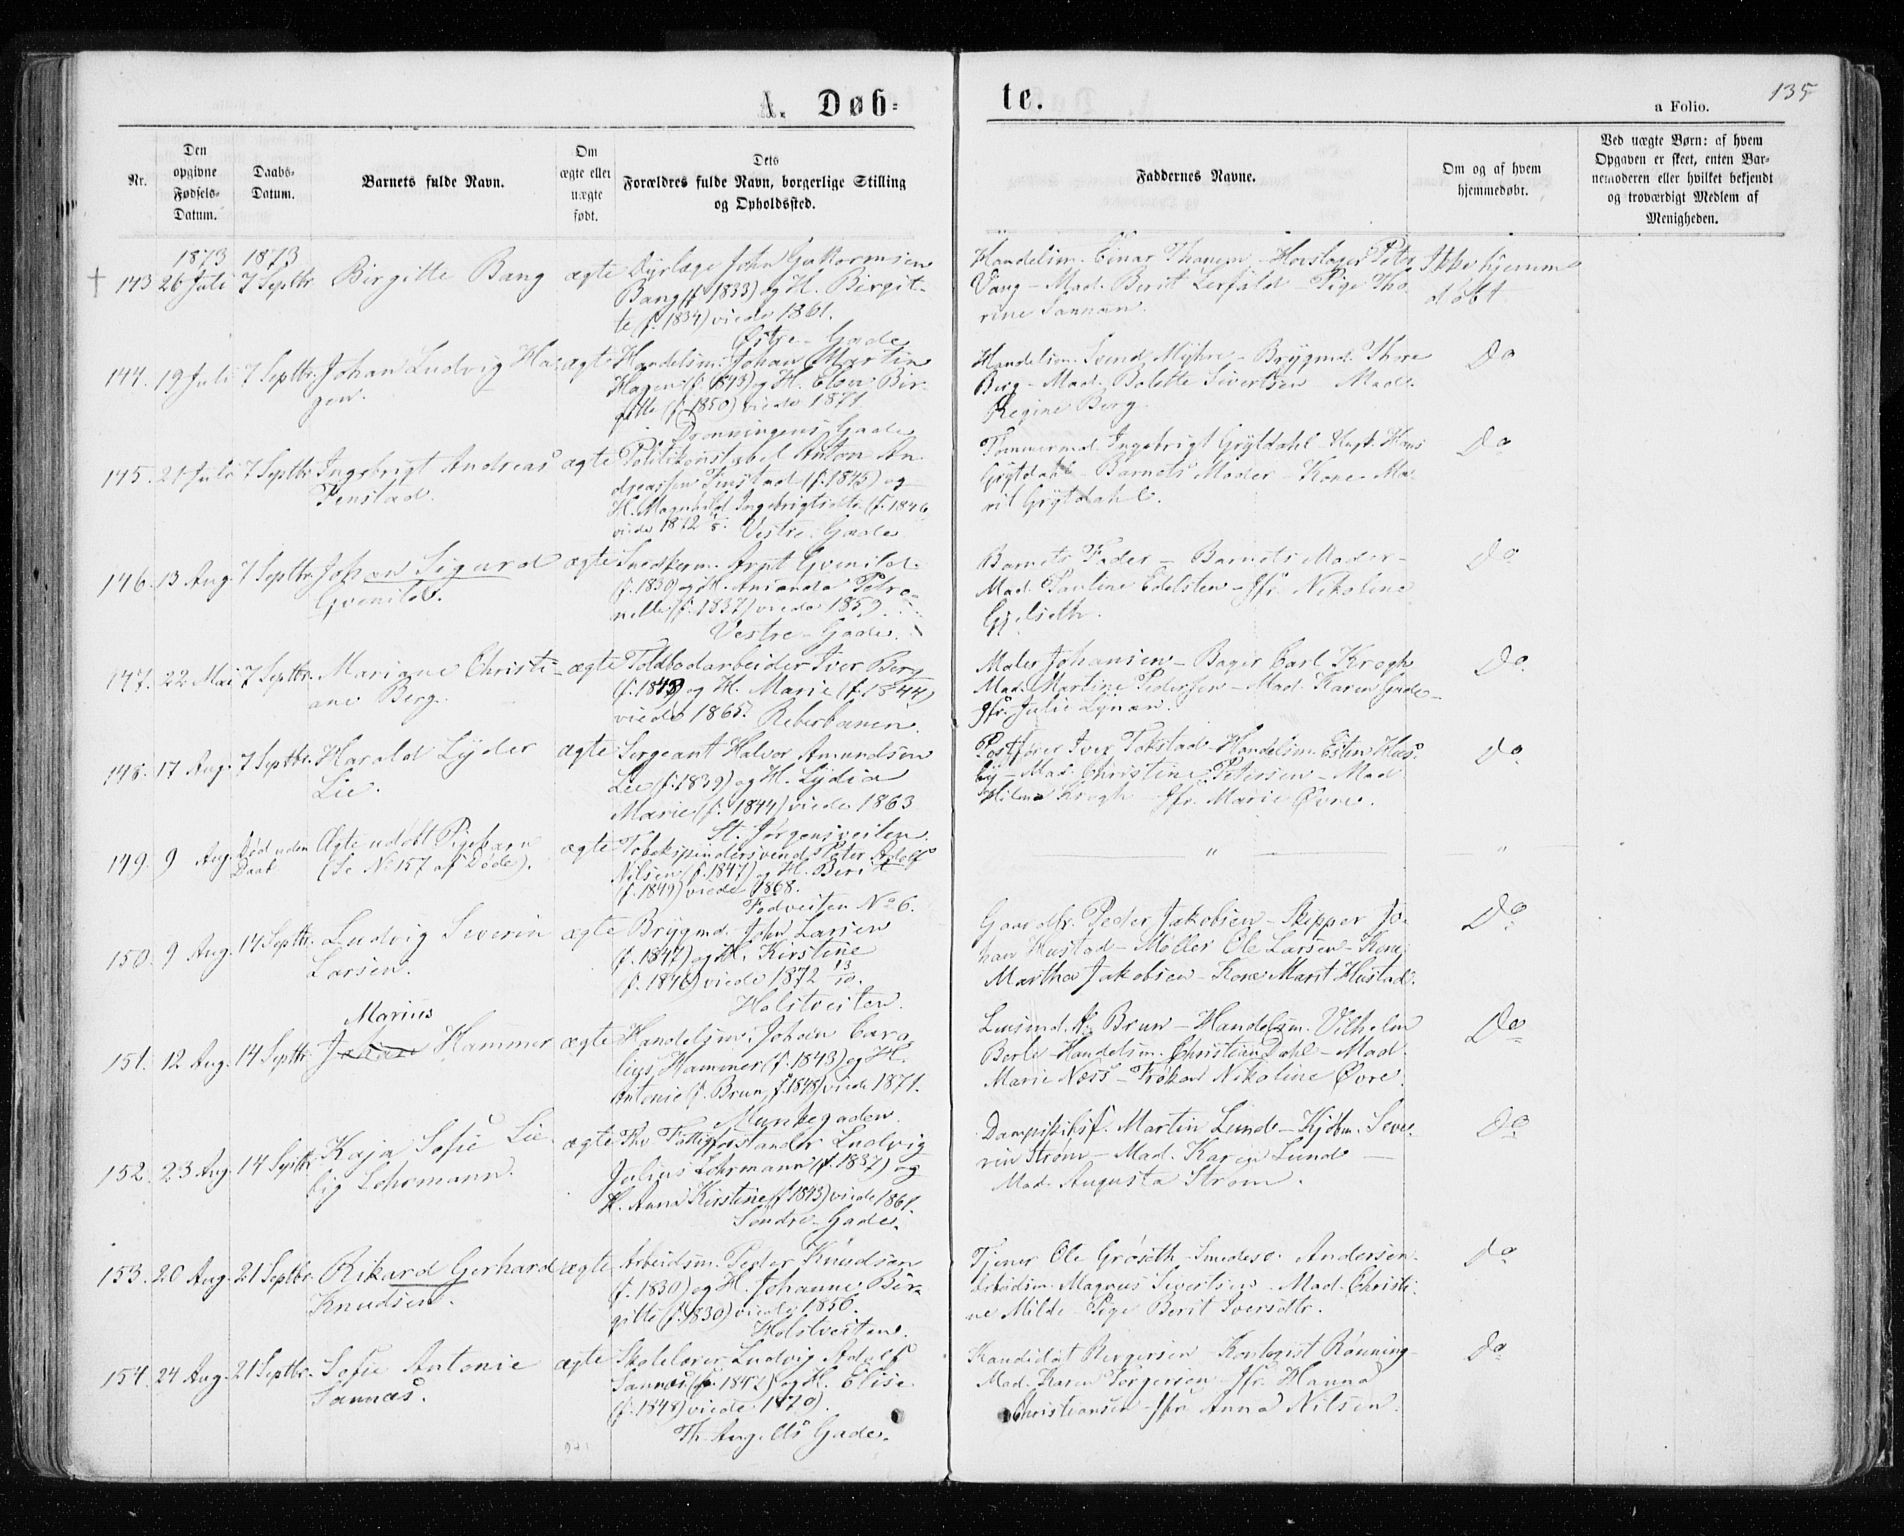 A. Døb-
te.
a Folio.
135
Nr.
Den opgivne Fødsels-Datum.
Daabs-Datum.
Barnets fulde Navn.
Om ægte eller uægte født.
Dets Forældres fulde Navn, borgerlige Stilling og Opholdssted.
Faddernes Navne.
Om og af hvem hjemmedøbt.
Ved uægte Børn: af hvem Opgaven er skeet, enten Barnemoderen eller hvilket bekjendt og troværdigt Medlem af Menigheden.
1873 1873
143 26 Juli 7 Septbr. Birgitte Bang ægte Dyrlæge John
Bang (f. 1833) og H. Birgit-
te (f. 1834) viede 1861.
Østre Gade
Handelsm. Einar Thanem - Peter
Vang - Mad. Berit Lerfald - Pige Tho-
rine Sannan.
Ikke hjemme
døbt
144. 19 Juli 7 Septbr. Johan Ludvig Ha-
gen.
ægte Handelsm. Johan Martin
Hagen (f. 1843) og H. Elen Bir-
gitte (f. 1850) viede 1871
Dronningens Gade
Handelsm. Svend Myhre - Brygmd. Thore
Berg - Mad. Bolette Sivertsen - Mad.
Regine Berg.
Do
145. 21 Juli 7 Septbr. Ingebrigt Andreas
Finstad.
ægte Politikonstabel Anton An-
dreassen Finstad (f. 1845) og
H. Magnhild Ingebrigtsdtr (f. 1846
viede 1872 Vestre Gade
Tømmermd. Ingebrigt Grytdahl - Hans
Grytdahl - Barnets Moder - Kone Ma-
rit Grytdahl.
Do
146. 13 Aug. 7 Septbr. Johan Sigurd
Gvenild.
ægte Snedkerm. Arnt Gvenild
(f. 1830) og H. Amanda Petro-
nelle (f. 1837) viede 1859.
Vestre Gade.
Barnets Fader - Barnets Moder -
Mad. Pauline Edelsten - Jfr. Nikoline
Gjelseth.
Do
147. 22 Mai 7 Septbr. Mariane Christi-
ane Berg.
ægte Toldbodarbeider Iver Berg
(f. 1843) og H. Marie (f. 1844)
viede 1865. Reberbanen.
Maler Johansen - Bager Carl Krogh
Mad. Martine Pedersen - Mad. Karen Gade -
Jfr. Julie Lynæn.
Do
148. 17 Aug. 7 Septbr. Harald Lyder
Lie.
ægte Sergeant Halvor Amundsen
Lie (f. 1839) og H. Lydia
Marie (f. 1844) viede 1863
St. Jørgensveiten.
Postfører Iver Tokstad - Handelsm. Esten Hus-
by - Mad. Christine Petersen - Mad.
Hilma Krogh - Jfr. Marie Øvre.
Do
149. 9 Aug. Død uden
Daab
Ægte udøbt Pigebarn
(Se No 157 af Døde).
ægte Tobakspindersvend Peter Adolf
Nilsen (f. 1847) og H. Berit
(f. 1849) viede 1868.
Fodveiten No 6.
"
"
150. 9 Aug. 14 Septbr. Ludvig Severin
Larsen.
ægte Brygmd. John Larsen
(f. 1847) og H. Kirstine
(f. 1846) viede 1872 13/10.
Holstveiten.
Gaardbr. Peder Jakobsen - Skipper Jo-
han Hustad - Møller Ole Larsen - Kone
Martha Jakobsen - Kone Marit Hustad.
Do
Marius
151. 12 Aug. 14 Septbr. Hammer
ægte Handelsm. Johan Caro-
lius Hammer (f. 1843) og H.
Antonie (f. Brun, f. 1848) viede 1871.
Munkegaden.
Brun - Handelsm. Vilhelm
Handelsm. Christian Dahl - Mad.
Marie Næss - Frøken Nikoline Øvre.
Do
152. 23 Aug. 14 Septbr. Kaja Sofie Lie-
big Lohrmann.
ægte Fattigforstander Ludvig
Julius Lohrmann (f. 1837) og
H. Anna Kirstine (f. 1843) viede 1861.
Søndre Gade.
Dampskibsf. Martin Lund - Kjøbm. Seve-
rin Strøm - Mad. Karen Lund -
Mad. Augusta Strøm.
Do
153. 20 Aug. 21 Septbr. Rikard Gerhard
Knudsen.
ægte Arbeidsm. Peder Knudsen
(f. 1830) og H. Johanne Bir-
gitte (f. 1830) viede 1856.
Holstveiten.
Tjener Ole Grøseth - Smedesv. Andersen -
Arbeidsm. Magnus Sivertsen - Mad. Christi-
ne Milde - Pige Berit Iversdtr.
Do
154. 24 Aug. 21 Septbr. Sofie Antonie
Sannæs.
ægte Skolelærer Ludvig Adolf
Sannæs (f. 1842) og H. Elise
(f. 1848) viede 1870.
Th. Angells Gade.
Kandidat Birgersen - Kontorist Rønning
Mad. Karen Jørgensen - Jfr. Hanna
Christiansen - Jfr. Anna Nilsen.
Do